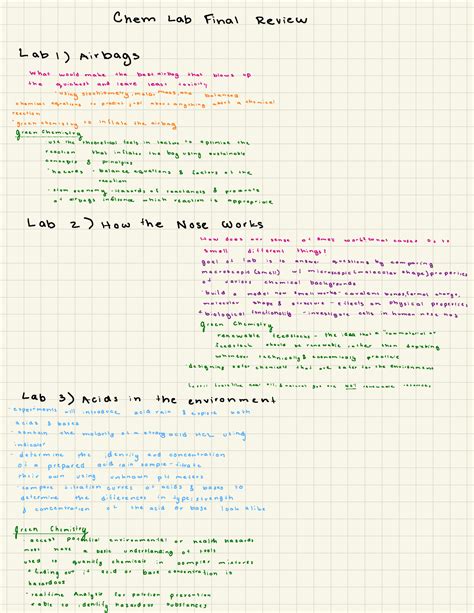 Chem Lab Final Review
Lab 1) Airbags
What would make the best airbag that blows up
the quickest and leave least toxicity
- using stoichiometry, molar mass, and balanced
chemical equations to predict, tell about anything about a chemical
reaction
- green chemistry to inflate the airbag
Green Chemistry
- use the theoretical tools in factors to optimize the
reaction that inflates the bag using sustainable
concepts & principles
- hazards - balance equations & factors of the
reaction
- atom economy - hazards of reactants & products
of airbags influence which reaction is appropriate
Lab 2) How the Nose Works
How does our sense of smell work? What causes us to
smell different things?
goal of lab is to answer questions by comparing
macroscopic (smell) w/ microscopic (molecular shape) properties
of various chemical backgrounds
- build a model how smell works - covalent bonds, formal charge,
molecular shape & structure - effects on physical properties
& biological functionality - investigate cells in human nose has
Green Chemistry
renewable feedstocks - the idea that a "raw material or
feedstock should be renewable rather than depleting
whenever technically & economically practice
- designing safer chemicals that are safer for the environment
fossil fuels like coal oil, & natural gas are NOT renewable resources
Lab 3) Acids in the environment
- experiments will introduce acid rain & explore both
acids & bases
- contain the molarity of a strong acid HCl using
indicator
- determine the identity and concentration
of a prepared acid rain sample - titrate
their own using unknown pH meters
- compare titration curves of acids & bases to
determine the differences in type, strength
& concentration of the acid or base look alike
Green Chemistry
- accept potential environmental or health hazards
must have a basic understanding of tools
used to quantify chemicals in complex mixtures
* finding out if acid or base concentration is
hazardous
- realtime Analysis for pollution prevention
able to identify hazardous substances